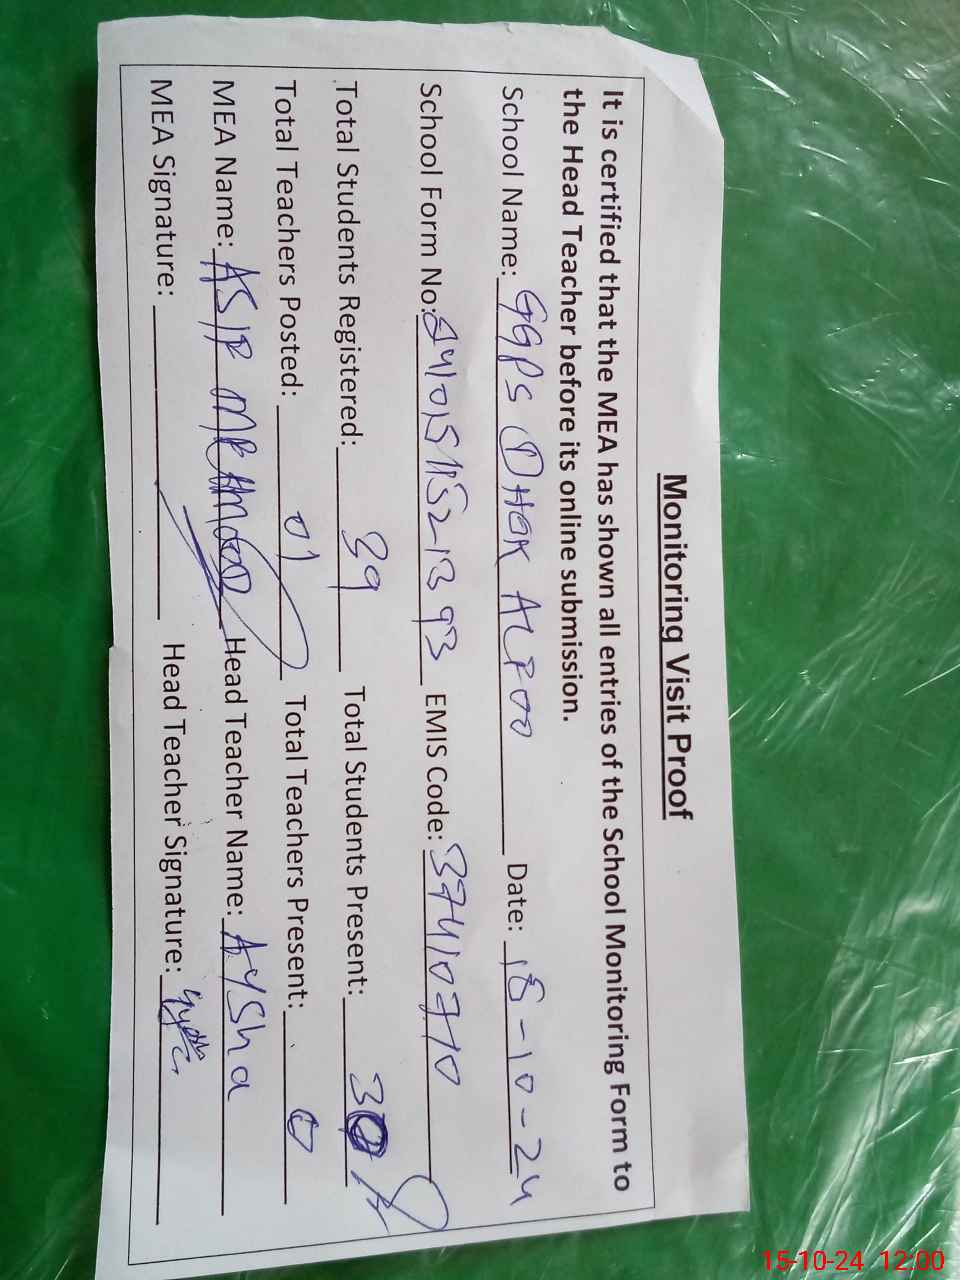 Monitoring Visit Proof
It is certified that the MEA has shown all entries of the School Monitoring Form to
the Head Teacher before its online submission.
School Name: GGPS DHOK ALFOO Date: 15-10-24
School Form No: EMIS Code: 37410770
Total Students Registered: 39 Total Students Present: 30
Total Teachers Posted: 01 Total Teachers Present: 0
MEA Name: ASIF MEHMOOD Head Teacher Name: AYSha
MEA Signature: Head Teacher Signature:
15-10-24 12:00